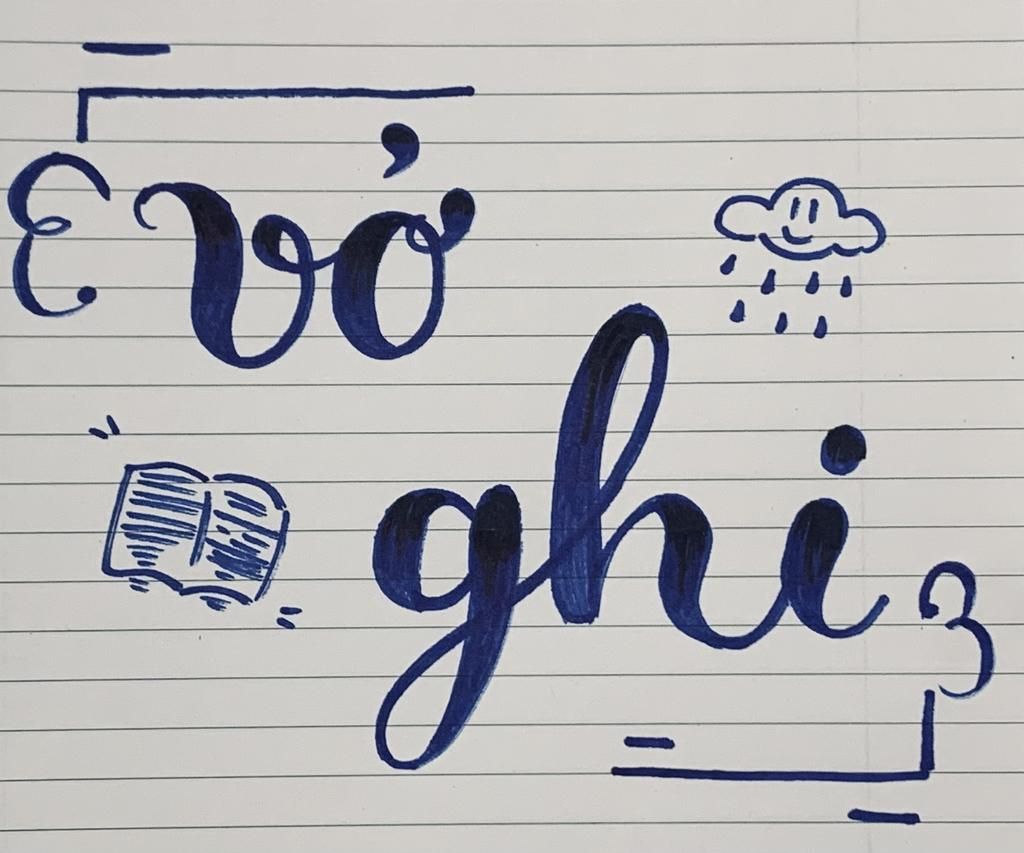 vở
ghi